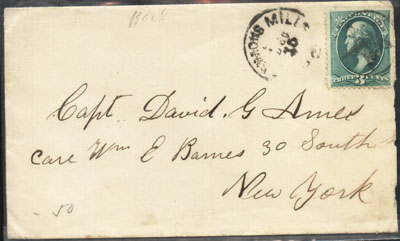 Book
MILLS
16
THREE CENTS
3
Capt. David. G Ames
Care Wm E Barnes 30 South
New York
- 50